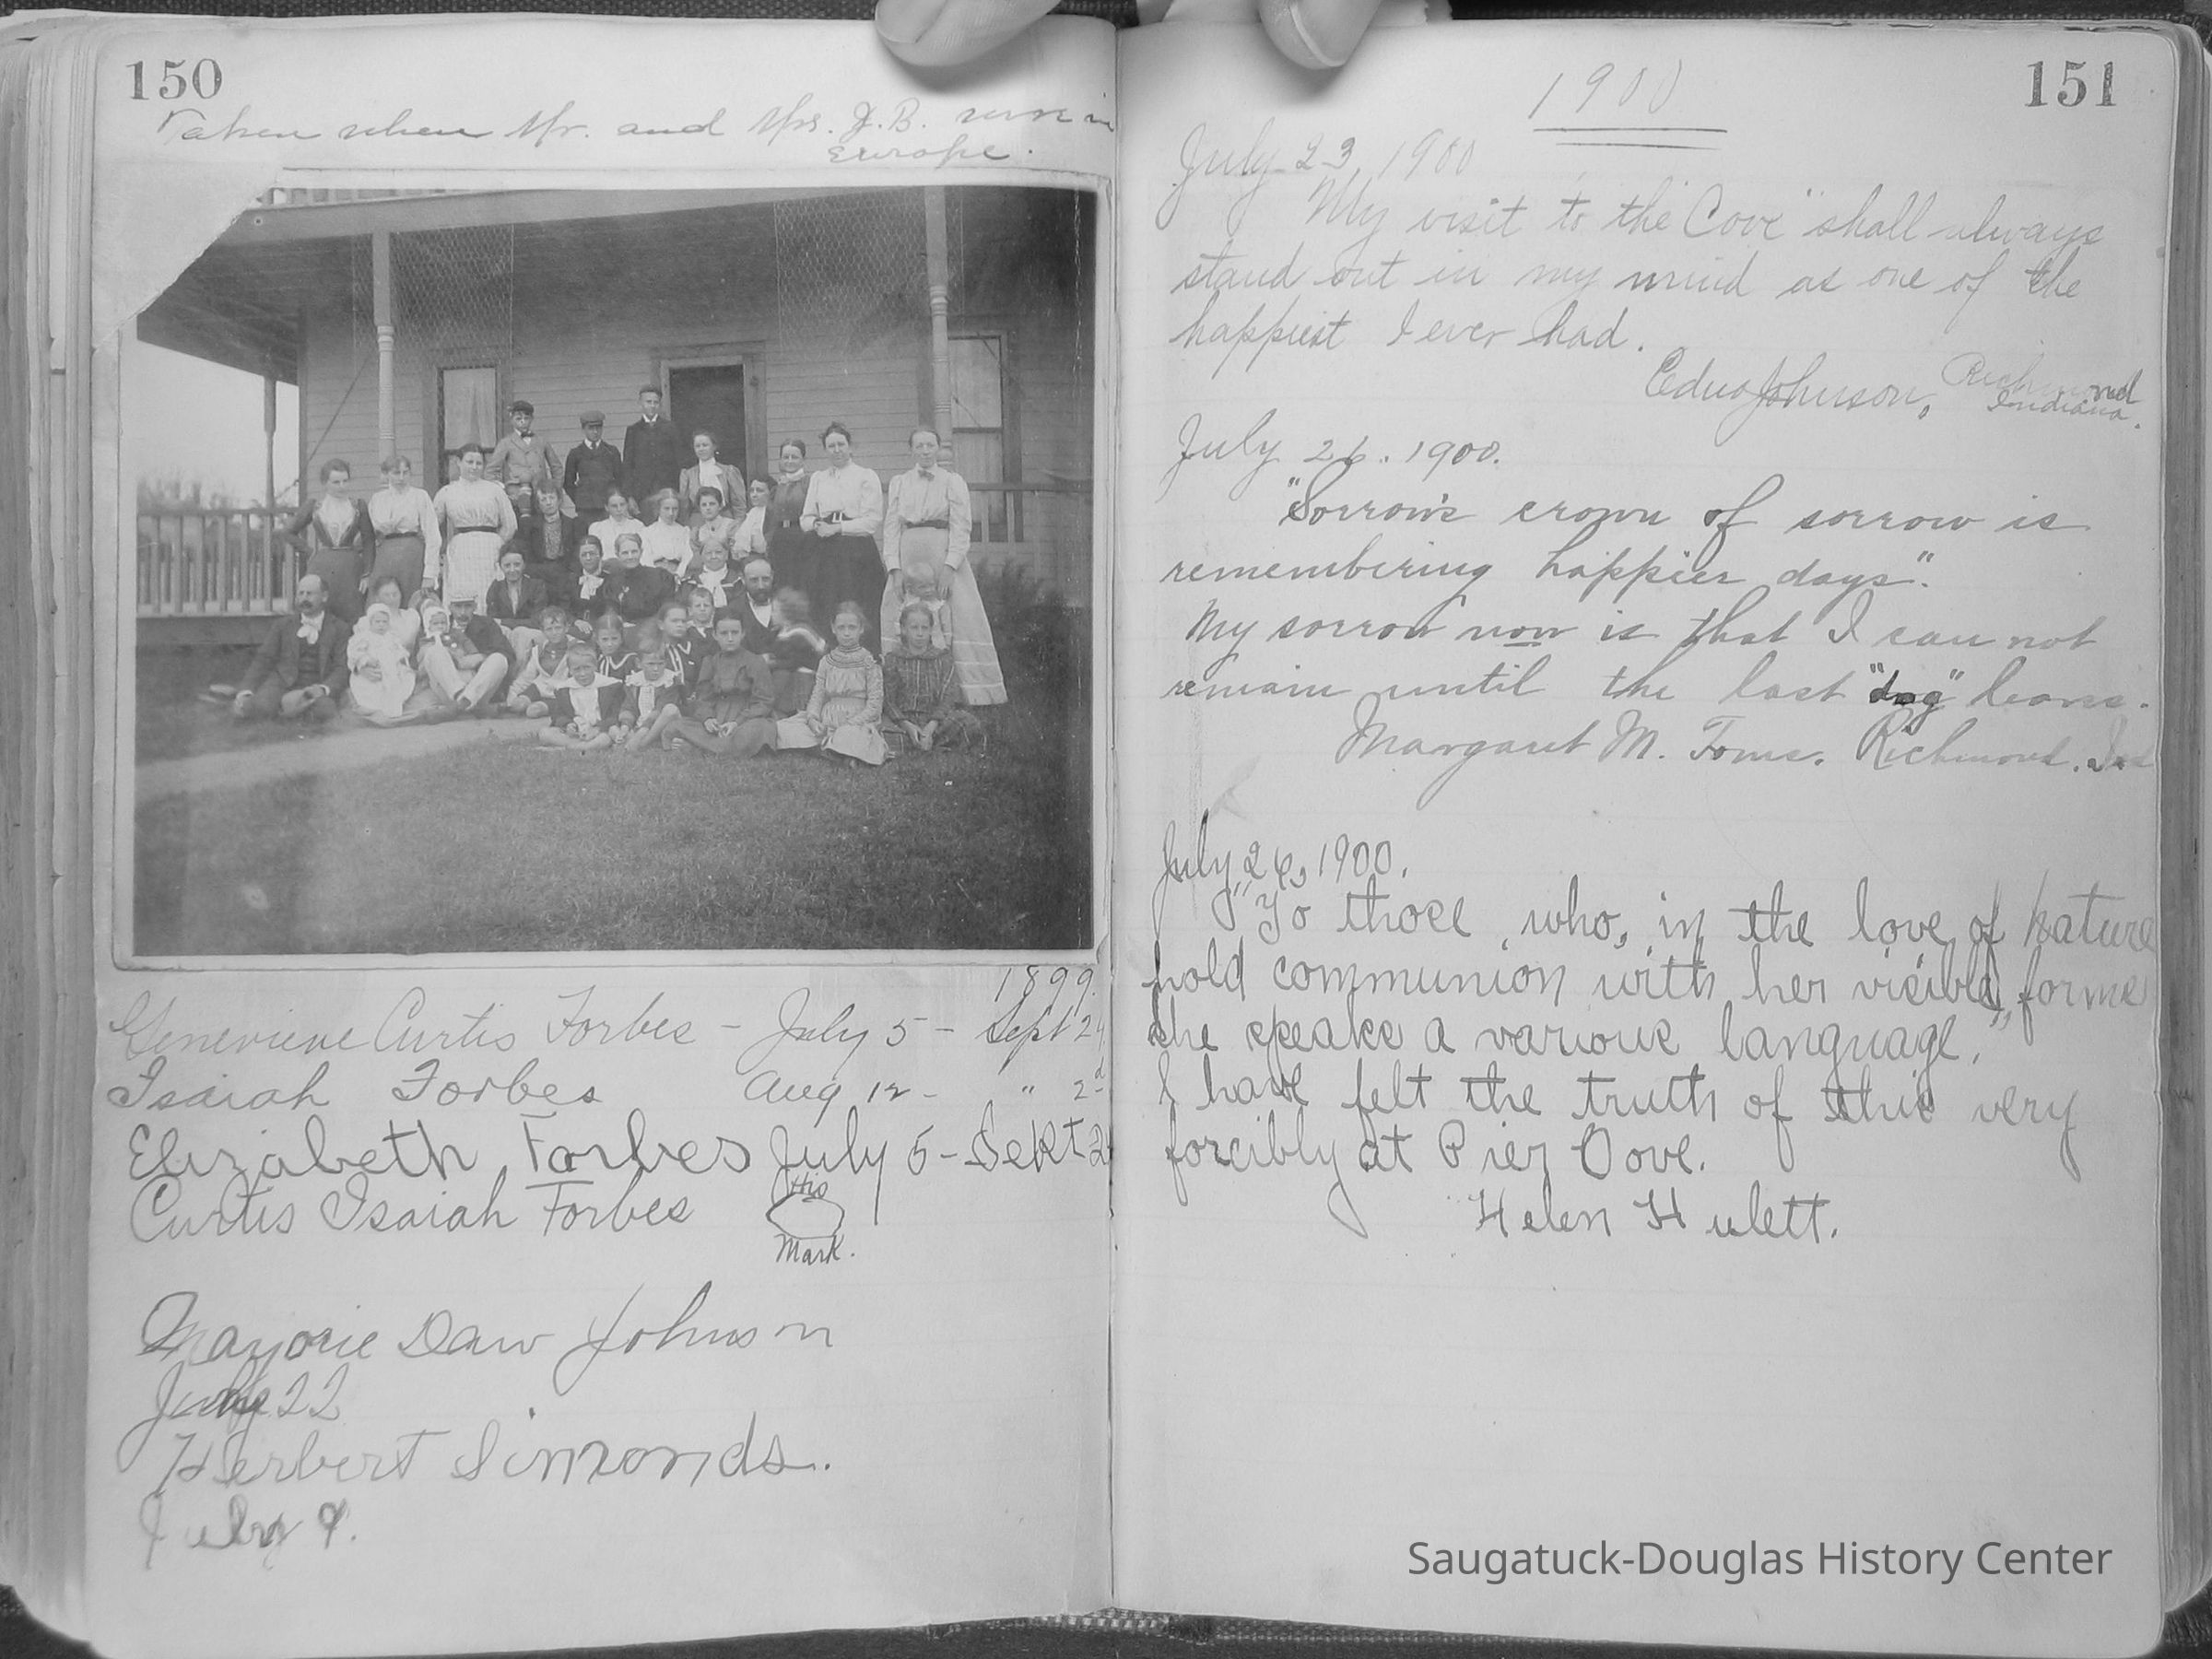 150
Taken when Mr. and Mrs. J.B. were in
Europe.
1899.
Genevieve Curtis Forbes - July 5 - Sept 2
Isaiah Forbes Aug 12 - " 2d
Elizabeth Forbes July 5 - Sept 2
Curtis Isaiah Forbes His
Mark.
Marjorie Daw Johnson
July 22
Herbert Simonds.
July 9.
151
1900
July 23, 1900
My visit to the Cove" shall always
stand out in my mind as one of the
happiest I ever had.
Edna Johnson, Richmond
Indiana.
July 26. 1900.
"Sorrow's crown of sorrow is
remembering happier days".
My sorrow now is that I can not
remain until the last "dog" leaves.
Margaret M. Toms. Richmond. Ind
July 26, 1900.
"To those, who, in the love of nature
hold communion with her visible, forms
she speaks a various language."
I have felt the truth of this very
forcibly at Pier Cove.
Helen Hulett.
Saugatuck-Douglas History Center